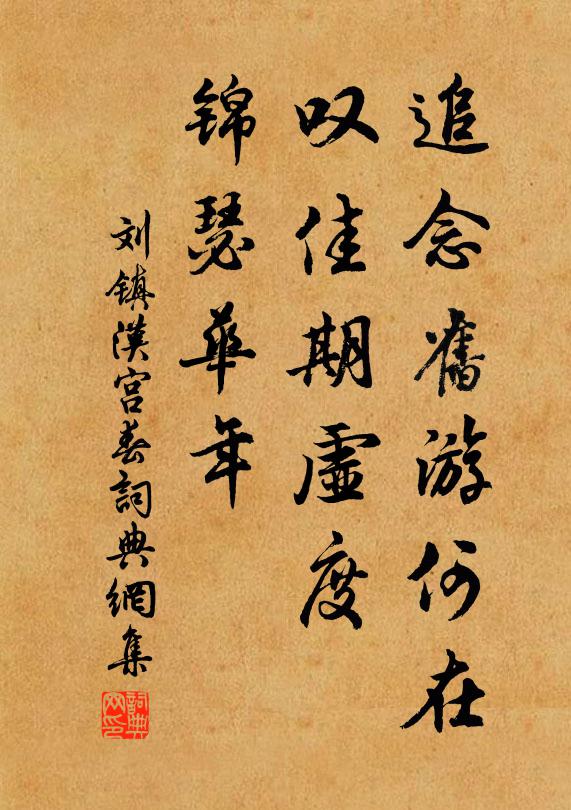 追念舊游何在
叹佳期虚度
锦瑟華年
刘镇漢宫春詞典網集
詞典网印